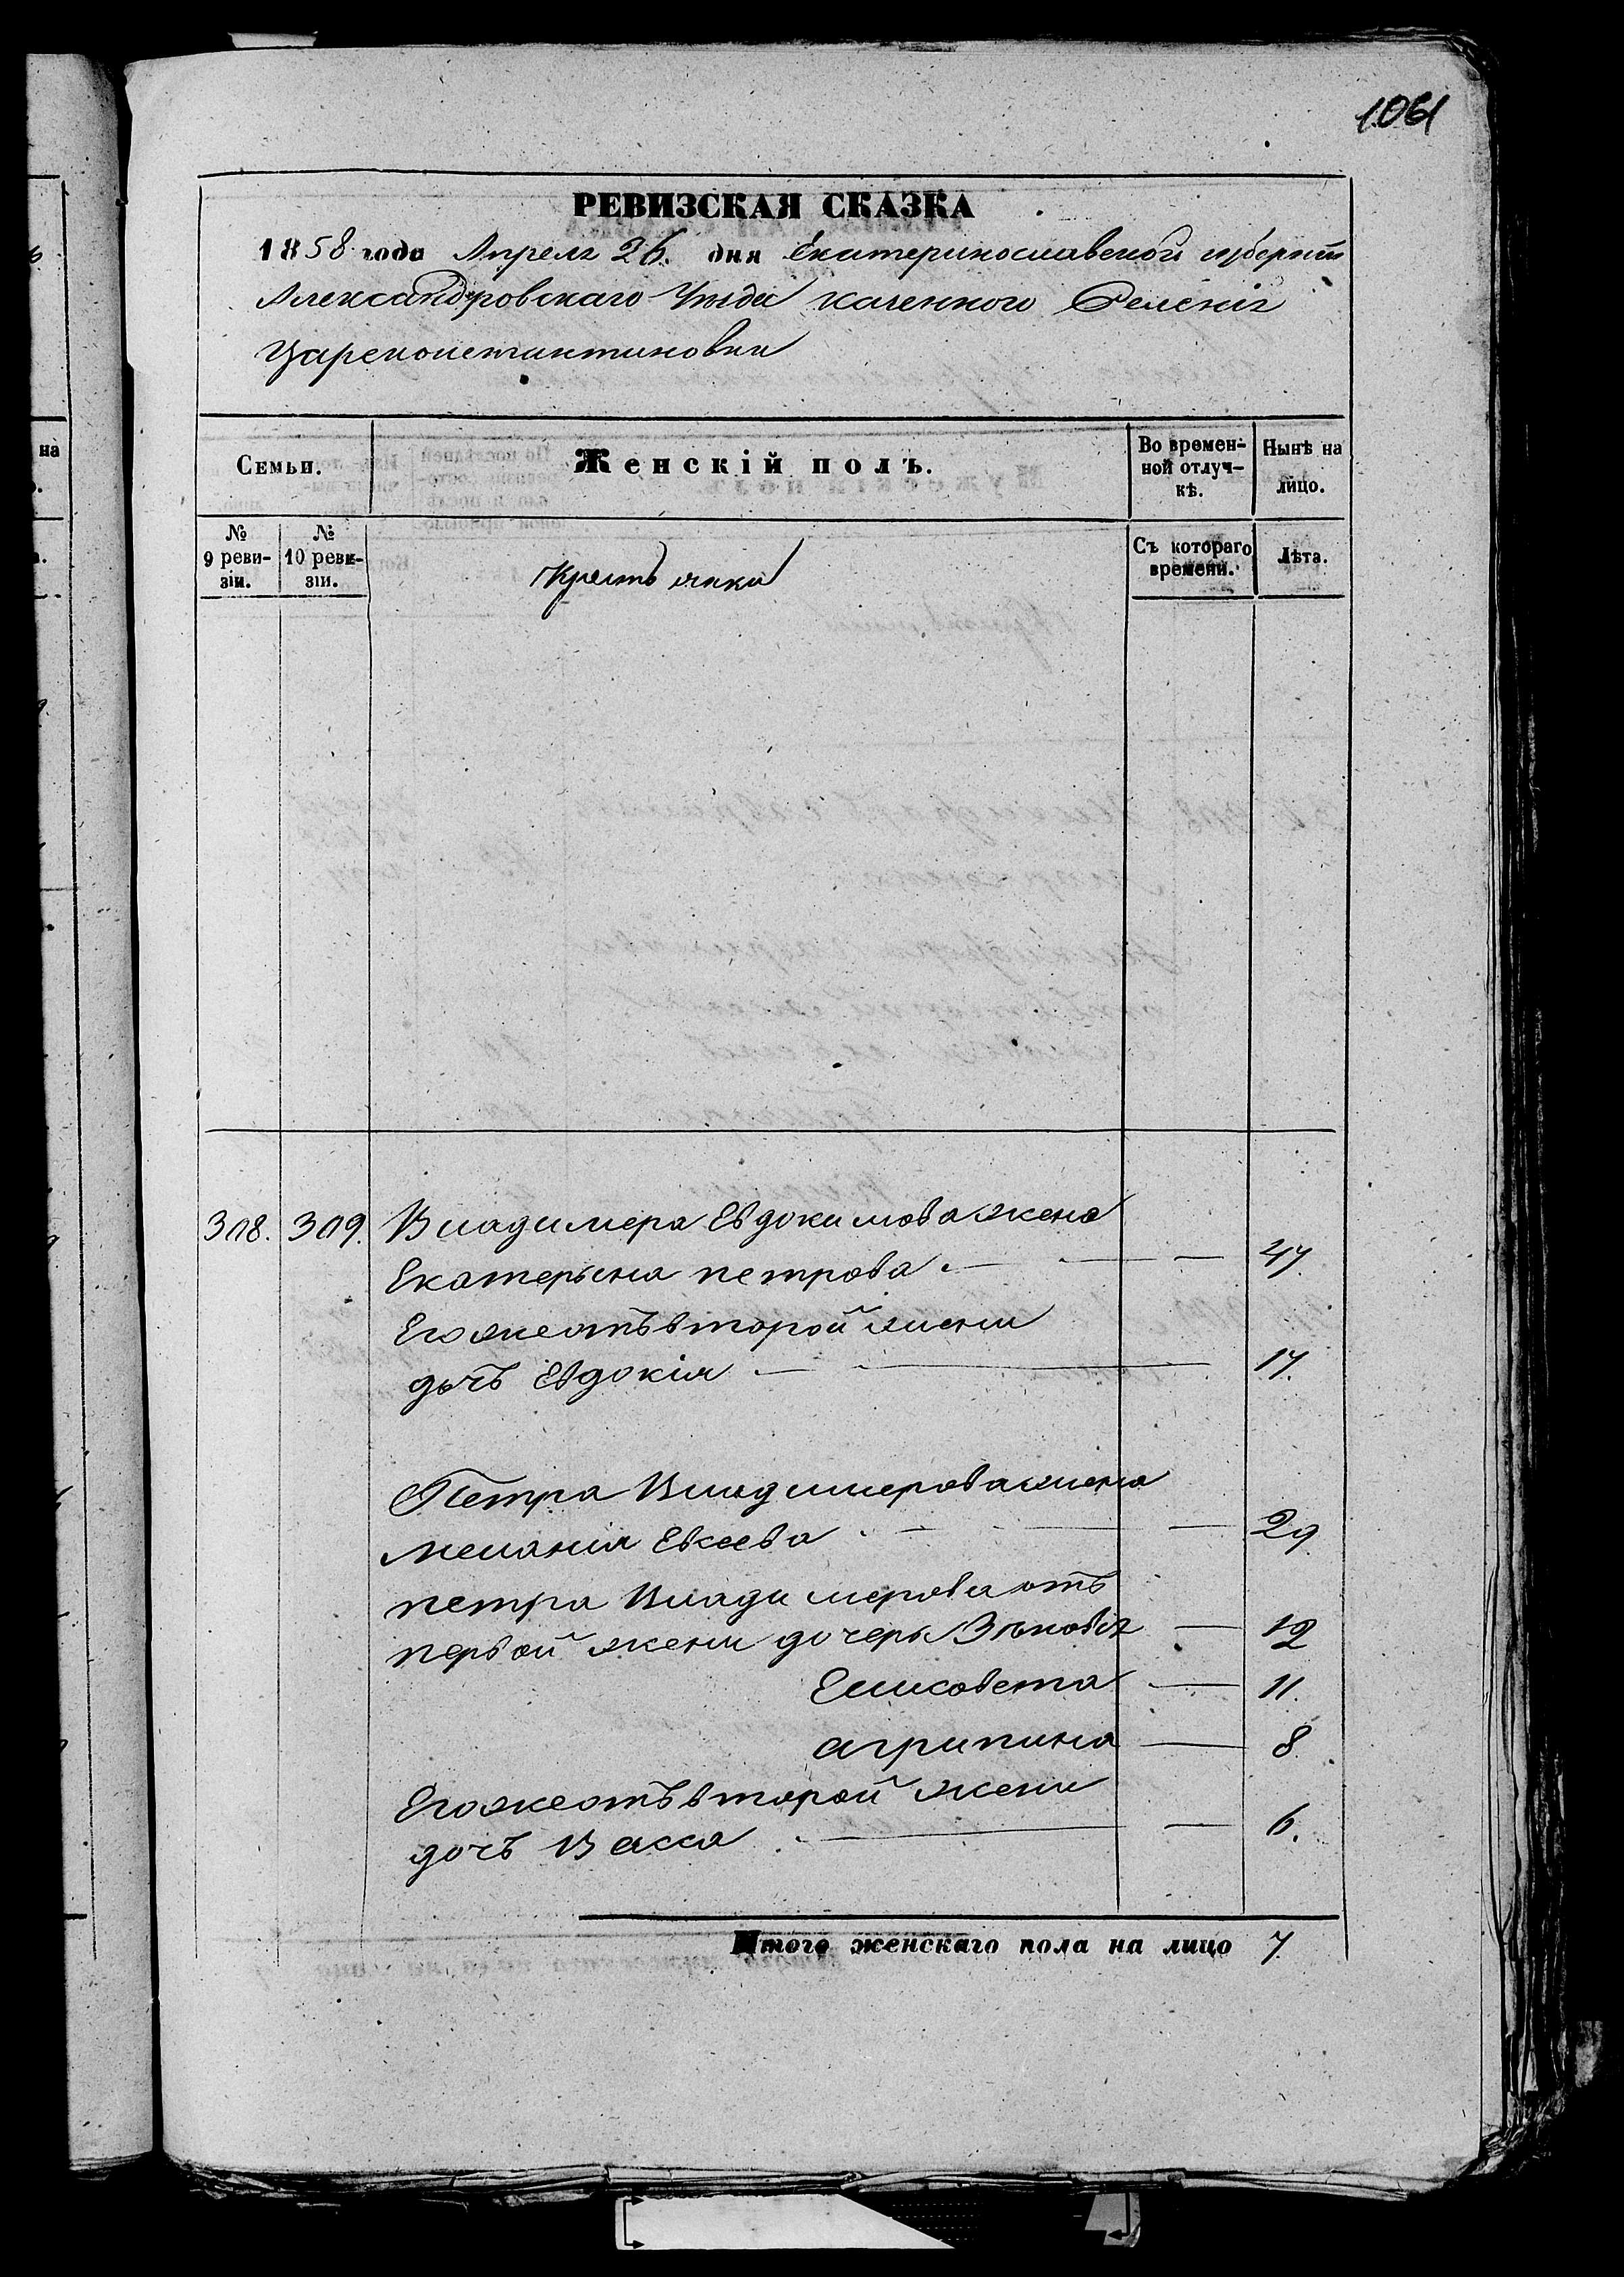 1061
РЕВИЗСКАЯ СКАЗКА
1858 года Апреля 26. дня Екатеринославской губерніи
Александровскаго Уезда казенного Селенія
Цареконстантиновки
Семьи.
Женскій полъ.
Во времен-
ной отлуч-
кѣ.
Нынѣ на
лицо.
№
9 реви-
зіи.
№
10 реви-
зіи.
Крестьянки
Съ котораго
времени.
Лѣта.
308. 309. Владимера Евдокимова жена
Екатерына петрова 47.
Его же отъ второй жени
дочъ Евдокія 17.
Петра Владимерова жена
мелания Евсеева 29
петра Владимерова отъ
первой жени дочеры Зѣновія 12
Елисовета 11.
агрипина 8.
Его же отъ второй жени
дочъ Васса 6.
Итого женскаго пола на лицо 7
на